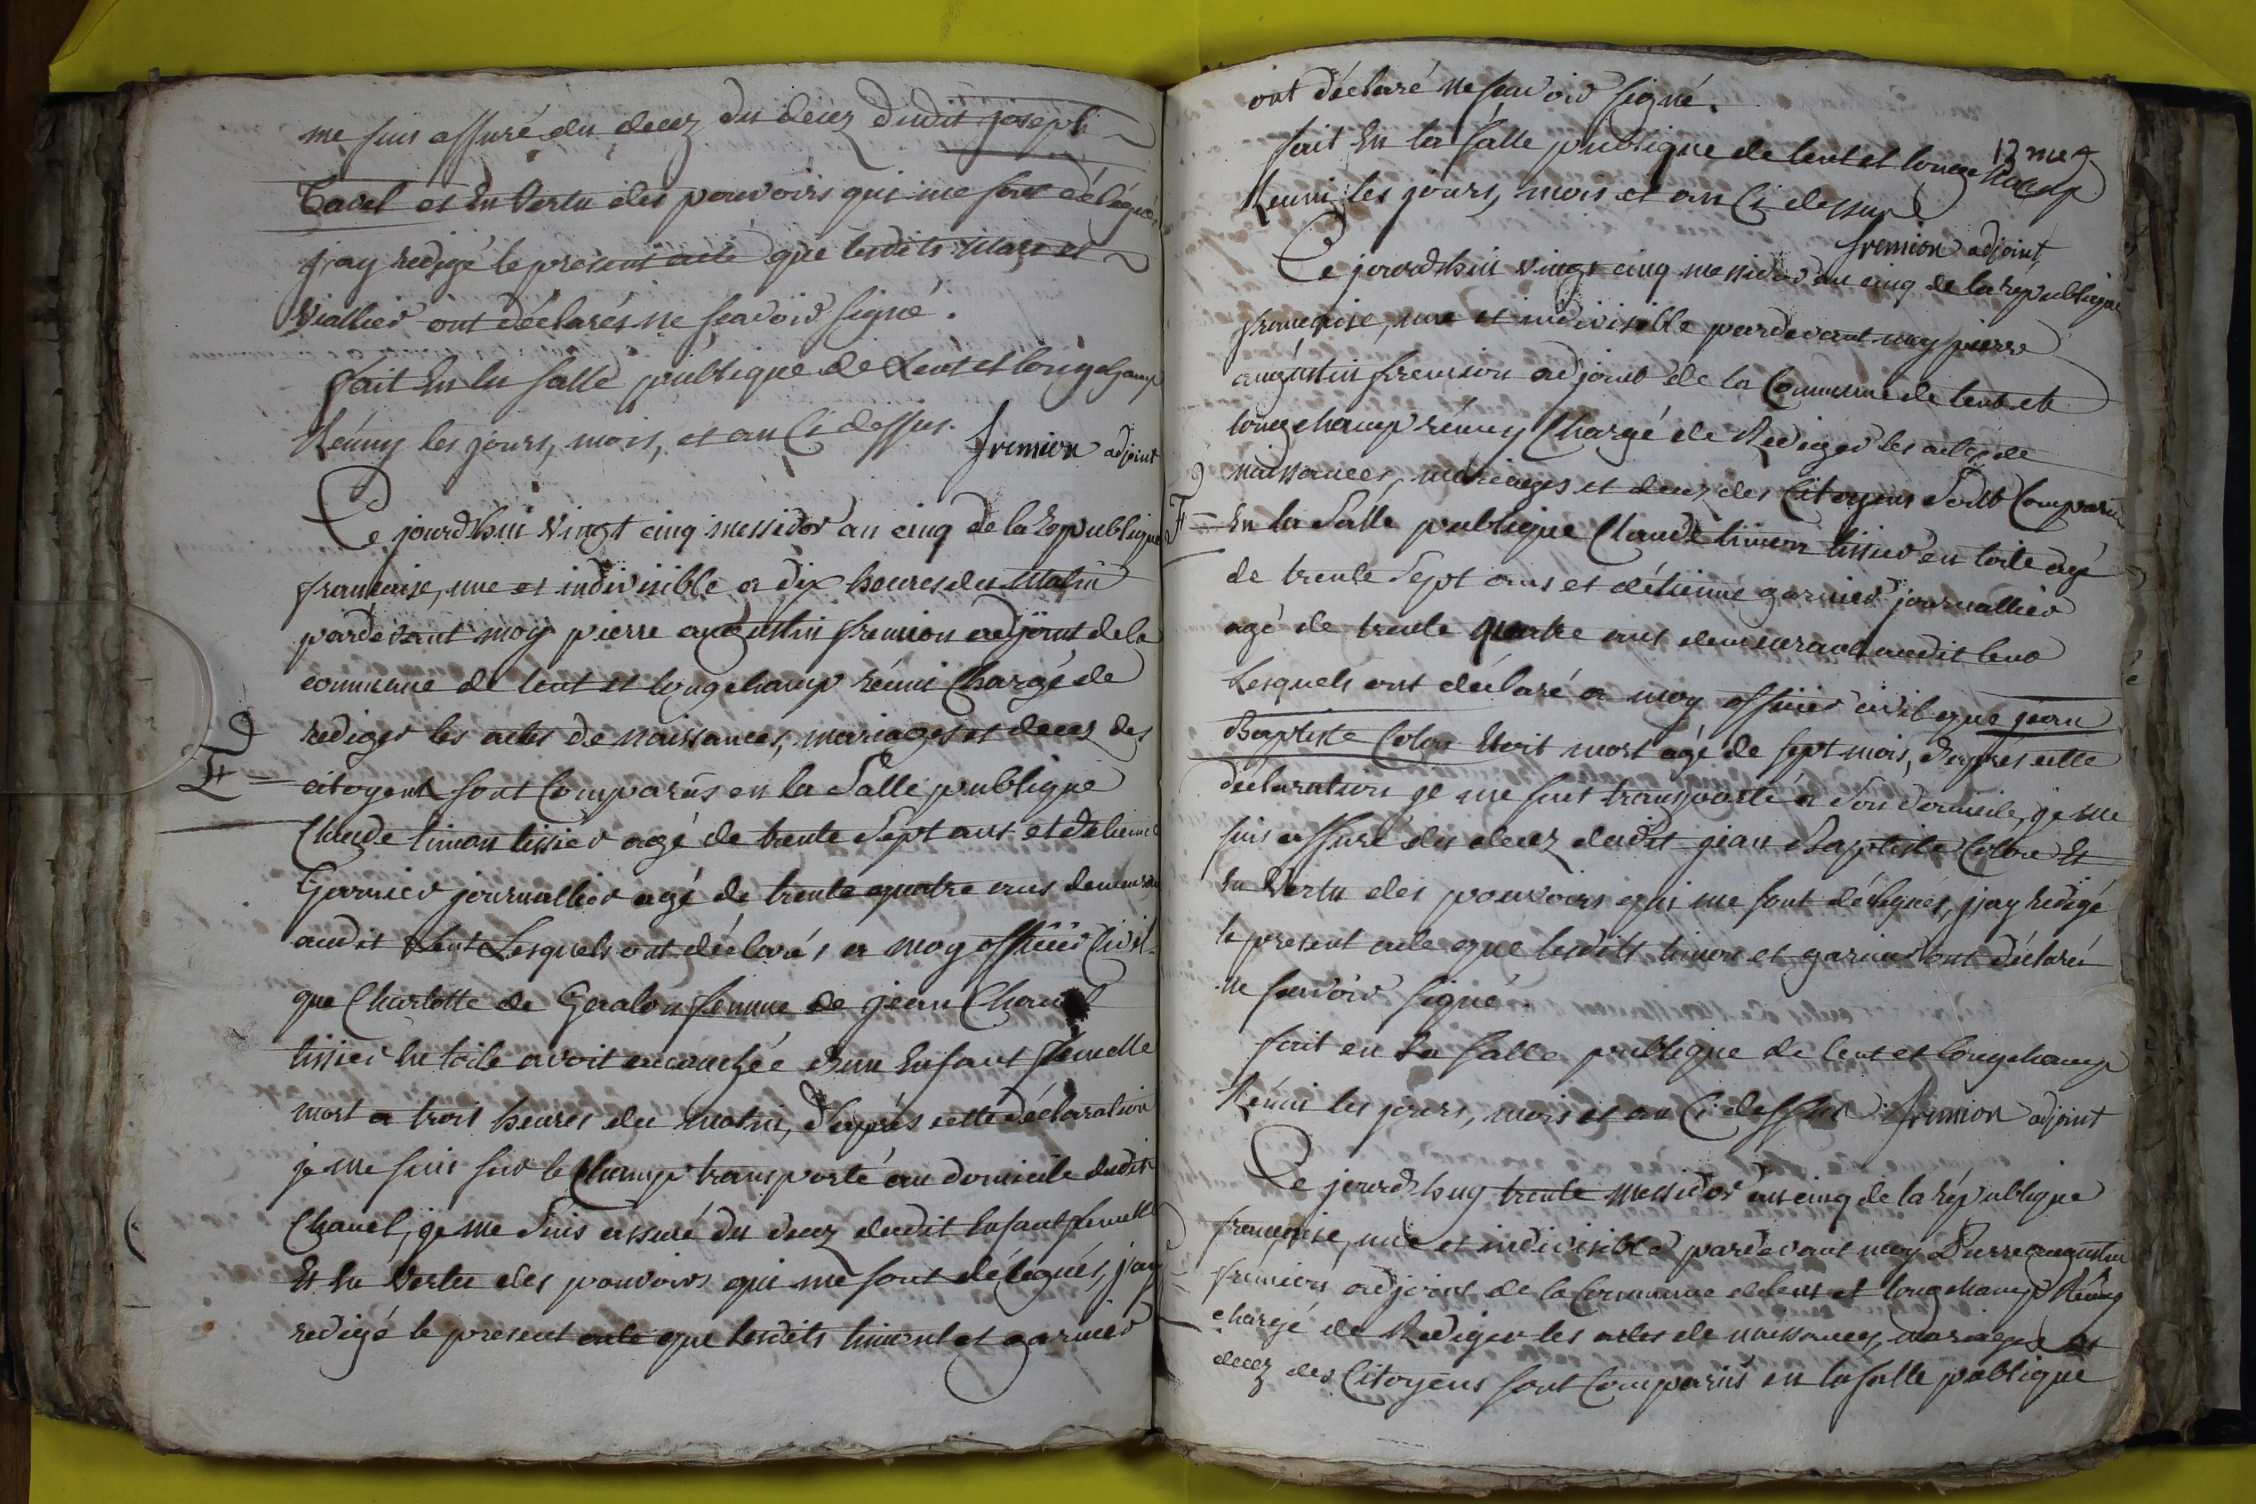 me suis assuré du decez du decez dudit joseph
Tavel et En Vertu des pouvoirs qui me sont délégués
j'ay redigé le present acte que lesdits Mare et
Viallier ont déclarés ne sçavoir signé.
fait En la salle publique de Lent et longchamp
Réuny les jours, mois, et an Ci dessus.
fremion adjoint
Ce jourd'huy Vingt cinq messidor an cinq de la République
francaise, une et indivisible a dix heures du Matin
pardevant moy pierre augustin fremion adjoint de la
commune de lent et longchamp réuni Chargé de
rediger les actes de naissances, mariages et decez des
D
citoyens sont Comparûs en la Salle publique
Claude timon tissier agé de trente Sept ans et Etienne
Garnier journallier agé de trente quatre ans demeurant
audit Lent Lesquels ont déclarés a moy officier Civil
que Charlotte de Geralon femme de jean Chanel
tissier En toile avoit accouchée d'un Enfant femelle
mort a trois heures du matin, d'après cette déclaration
je me suis sur le Champ transporté au domicile dudit
Chanel, je me Suis assuré du decez dudit Enfant femelle
Et En Vertu des pouvoirs qui me sont délégués, j'ay
redigé le present acte que lesdits timont et garnier
ont déclaré ne sçavoir signé.
fait En la salle publique de lent et longchamp
12 me
Réuni les jours, mois et an Ci dessus
fremion adjoint
Ce jourd'hui vingt cinq messidor an cinq de la république
françoise, une et indivisible pardevant moy pierre
augustin fremion adjoint de la Commune de lent et
longchamp réuny Chargé de Rediger les actes de
naissances, mariages et decez des Citoyens Sont Comparûs
D
En la Salle publique Claude timon tissier en toile agé
de trente Sept ans et d'étienne garnier journallier
agé de trente quatre ans demeurant audit lent
Lesquels ont déclaré a moy officier civil que jean
Baptiste Colon Etoit mort agé de sept mois, d'après cette
déclaration je me suis transporté a Son domicile, je me
suis assuré du decez dudit jean Baptiste Colon Et
En Vertu des pouvoirs qui me sont délégués, j'jay redigé
le present acte que lesdits timon et garnier ont déclarés
ne sçavoir signé.
fait en La salle publique de lent et longchamp
Réuni les jours, mois et an Ci dessus fremion adjoint
Ce jourd'huy trente Messidor an cinq de la république
françoise, une et indivisible pardevant moy Pierre augustin
fremion adjoint de la Commune de lent et longchamp Réuny
chargé de Rediger les actes de naissances, mariages et
decez des Citoyens sont Comparûs en la salle publique